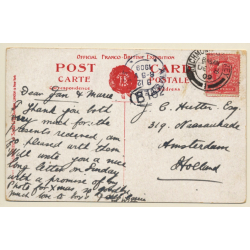 OFFICIAL FRANCO-BRITISH EXHIBITION
POST CARD
CARTE POSTALE
Correspondence
Dear Jan &
I thank you both
very much for the
presents received, am
so pleased with them
Will write you a nice
long letter on Sunday
with a promise of my
Photo for Xmas,
much love to
J. C. Hutter Esq
319. Nassaukade
Amsterdam
Holland